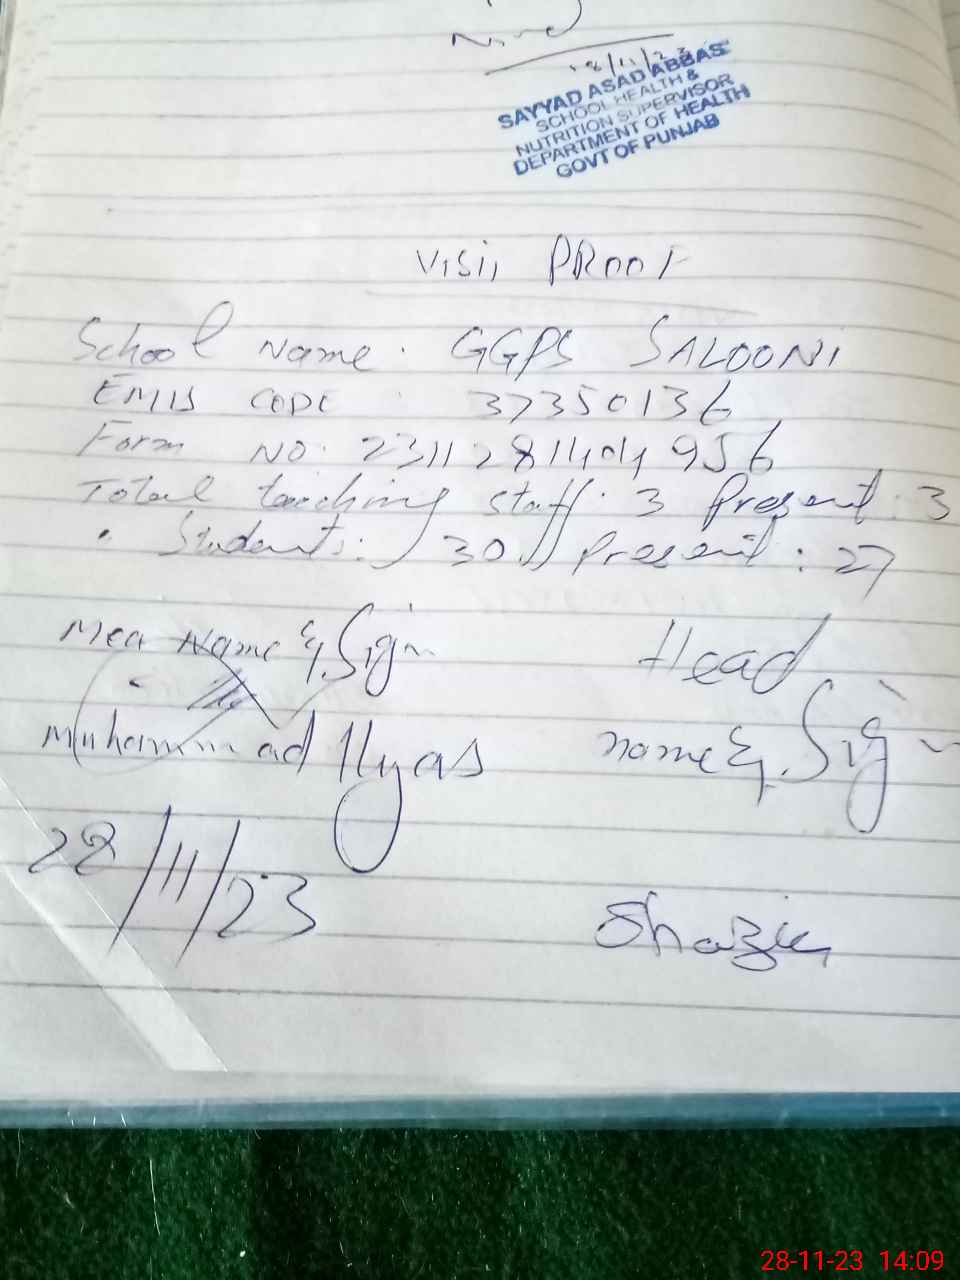 18/11/23
SAYYAD ASAD ABBAS
SCHOOL HEALTH &
NUTRITION SUPERVISOR
DEPARTMENT OF HEALTH
GOVT OF PUNJAB
Visit PROOF
School Name. GGPS SALOONI
EMIS CODE 37350136
Form NO. 23112811404956
Total teaching staff: 3 Present: 3
" Students: 30 Present: 27
Mea Name & Sign Head
Muhammad Ilyas name & Sign
28/11/23
Shazia
28-11-23 14:09